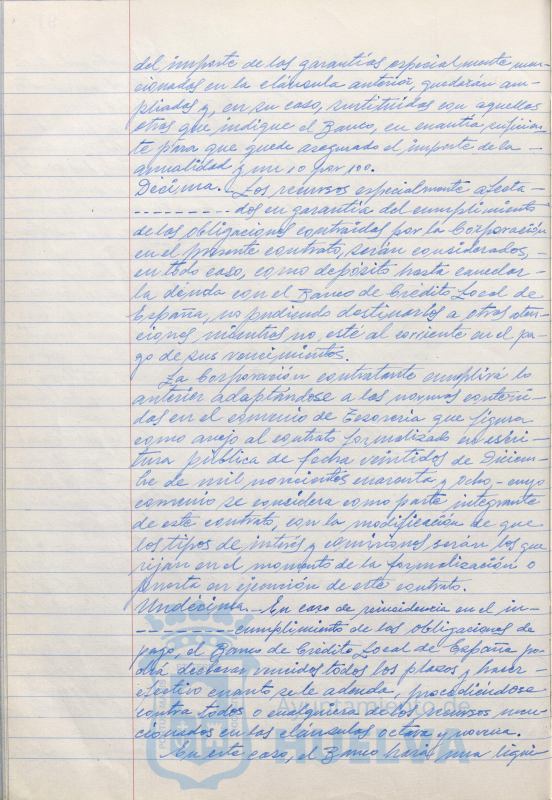 del importe de las garantías especialmente men-
cionadas en la cláusula anterior, quedarán am-
pliadas y, en su caso, sustituidas con aquellas
otras que indique el Banco, en cuantía suficien-
te para que quede asegurado el importe de la -
anualidad y un 10 por 100.
Décima. Los recursos especialmente afecta-
---------- dos en garantía del cumplimiento
de las obligaciones contraidas por la Corporación
en el presente contrato, serán considerados, -
en todo caso, como depósito hasta cancelar-
la deuda con el Banco de Crédito Local de
España, no pudiendo destinarlos a otras aten-
ciones mientras no esté al corriente en el pa-
go de sus vencimientos.
La Corporación contratante cumplirá lo
anterior adaptándose a las normas conteni-
das en el convenio de Tesorería que figura
como anejo al contrato formalizado en escri-
tura pública de fecha veintidos de Diciem-
bre de mil novecientos cuarenta y ocho,- cuyo
convenio se considera como parte integrante
de este contrato, con la modificación de que
los tipos de interés y comisiones serán los que
rijan en el momento de la formalización o
puesta en ejecución de este contrato.
Undécima.- En caso de reincidencia en el in-
---------- cumplimiento de las obligaciones de
pago, el Banco de Crédito Local de España po-
drá declarar vencidos todos los plazos y hacer
efectivo cuanto se le adeuda, procediéndose
contra todos o cualquiera de los recursos men-
cionados en las cláusulas octava y novena.
En este caso, el Banco hará una liqui
Ayuntamiento de
HUELVA